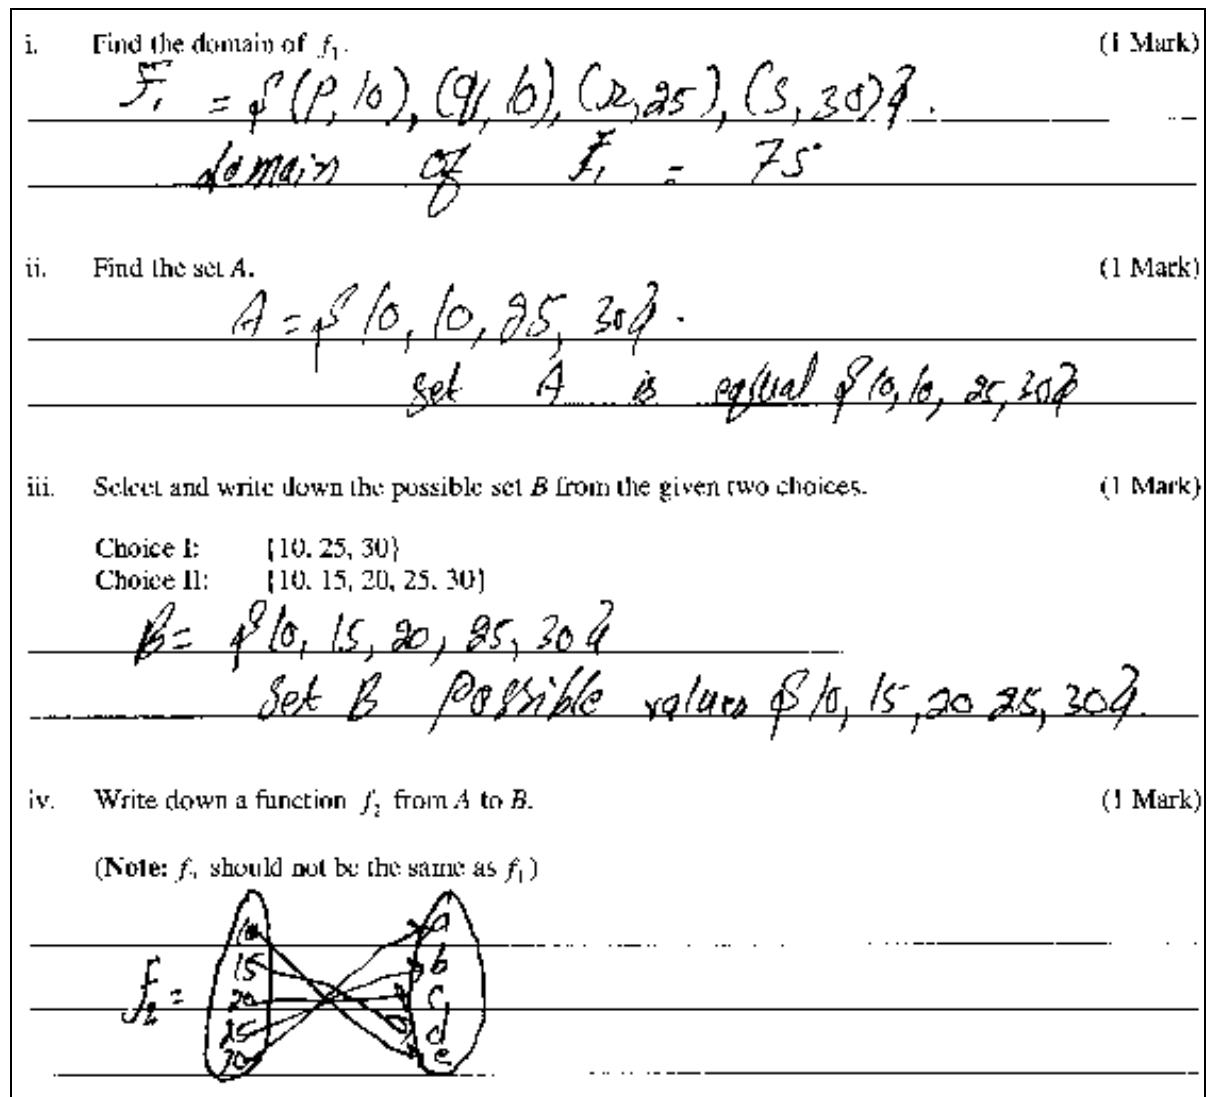 i. Find the domain of f₁. (1 Mark)
F₁ = {(P, 10), (q, 10), (r, 25), (s, 30)}.
domain of F₁ = 75
ii. Find the set A. (1 Mark)
A = {10, 10, 25, 30}.
set A is equal {10, 10, 25, 30}
iii. Select and write down the possible set B from the given two choices. (1 Mark)
Choice I: {10, 25, 30}
Choice II: {10, 15, 20, 25, 30}
B = {10, 15, 20, 25, 30}
Set B Possible values {10, 15, 20 25, 30}.
iv. Write down a function f₂ from A to B. (1 Mark)
(Note: f₂ should not be the same as f₁)
10 a
15 b
f₂ = 20 c
25 d
30 e